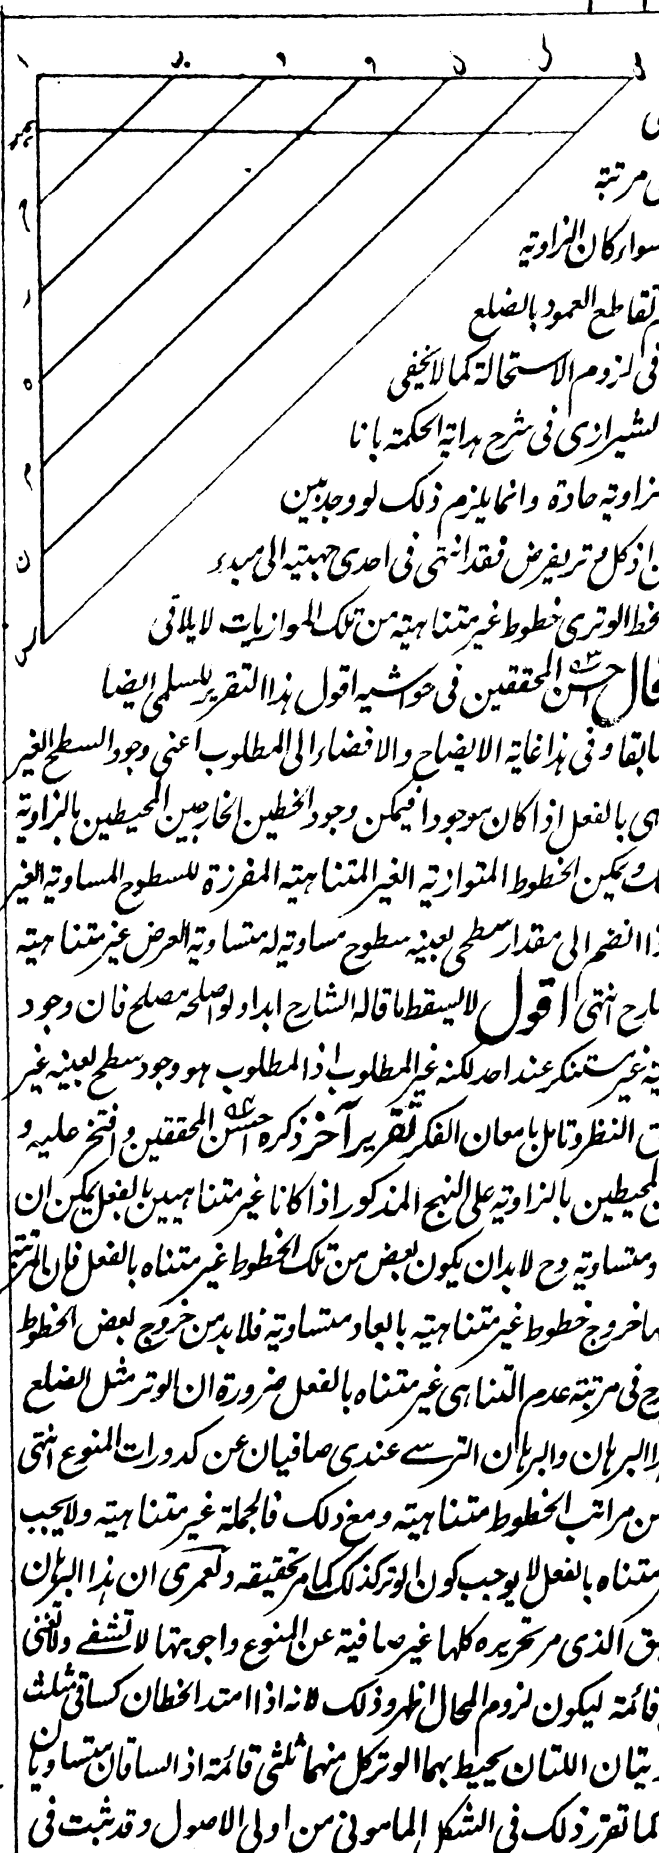 مرتبة
سواء كان الزاوية
تقاطع العمود بالضلع
فى لزوم الاستحالة كما لا يخفى
الشيرازى فى شرح هداية الحكمة بانا
زاوية حادة وانما يلزم ذلك لو وجد بين
اذ كل وتر يفرض فقد انتهى فى احدى جهتيه الى مبدء
الخط الوترى خطوط غير متناهية من تلك الموازيات لا يلاقى
قال احسن المحققين فى حواشيه اقول هذا التقرير للسلمى ايضا
سابقا وفى هذا غاية الايضاح والافضاء الى المطلوب اعنى وجود السطح الغير
بالفعل اذا كان موجودا فيمكن وجود الخطين الخارجين المحيطين بالزاوية
ويمكن الخطوط المتوازية الغير المتناهية المفرزة للسطوح المساوية الغير
اذا انضم الى مقدار سطحى بعينه سطوح مساوية له متساوية العرض غير متناهية
انتهى اقول لا يسقط ما قاله الشارح ابدا ولو اصلحه مصلح فان وجود
غير مستنكر عند احد لكنه غير المطلوب اذ المطلوب هو وجود سطح بعينه غير
النظر وتامل بامعان الفكر تقرير آخر ذكره احسن المحققين وافتخر عليه و
المحيطين بالزاوية على النهج المذكور اذا كانا غير متناهيين بالفعل يمكن ان
ومتساوية وح لا بد ان يكون بعض من تلك الخطوط غير متناه بالفعل فان
خروج خطوط غير متناهية بابعاد متساوية فلا بد من خروج بعض الخطوط
فى مرتبة عدم التناهى غير متناه بالفعل ضرورة ان الوتر مثل الضلع
البرهان والبرهان الترسى عندى صافيان عن كدورات المنوع انتهى
من مراتب الخطوط متناهية ومع ذلك فالجملة غير متناهية ولا يجب
متناه بالفعل لا يوجب كون الوتر كذلك كما مر تحقيقه ولعمرى ان هذا البرهان
الذى مر تحريره كلها غير صافية عن المنوع واجوبتها لا تشفى ولا تغنى
قائمة ليكون لزوم المحال اظهر وذلك لانه اذا امتد الخطان كساقى مثلث
اللتان يحيط بهما الوتر كل منهما ثلثى قائمة اذ الساقان متساويان
كما تقرر ذلك فى الشكل المامونى من اولى الاصول وقد ثبت فى